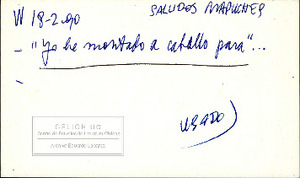 W 18-2-90 SALUDOS MAPUCHES
- "Yo he montado a caballo para"...
-
USADO